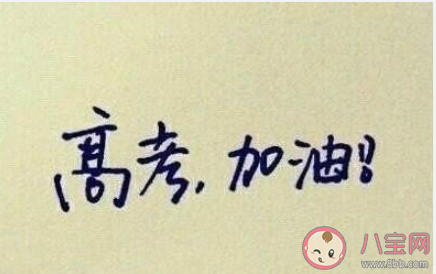 高考，加油！
八宝网
www.8bb.com